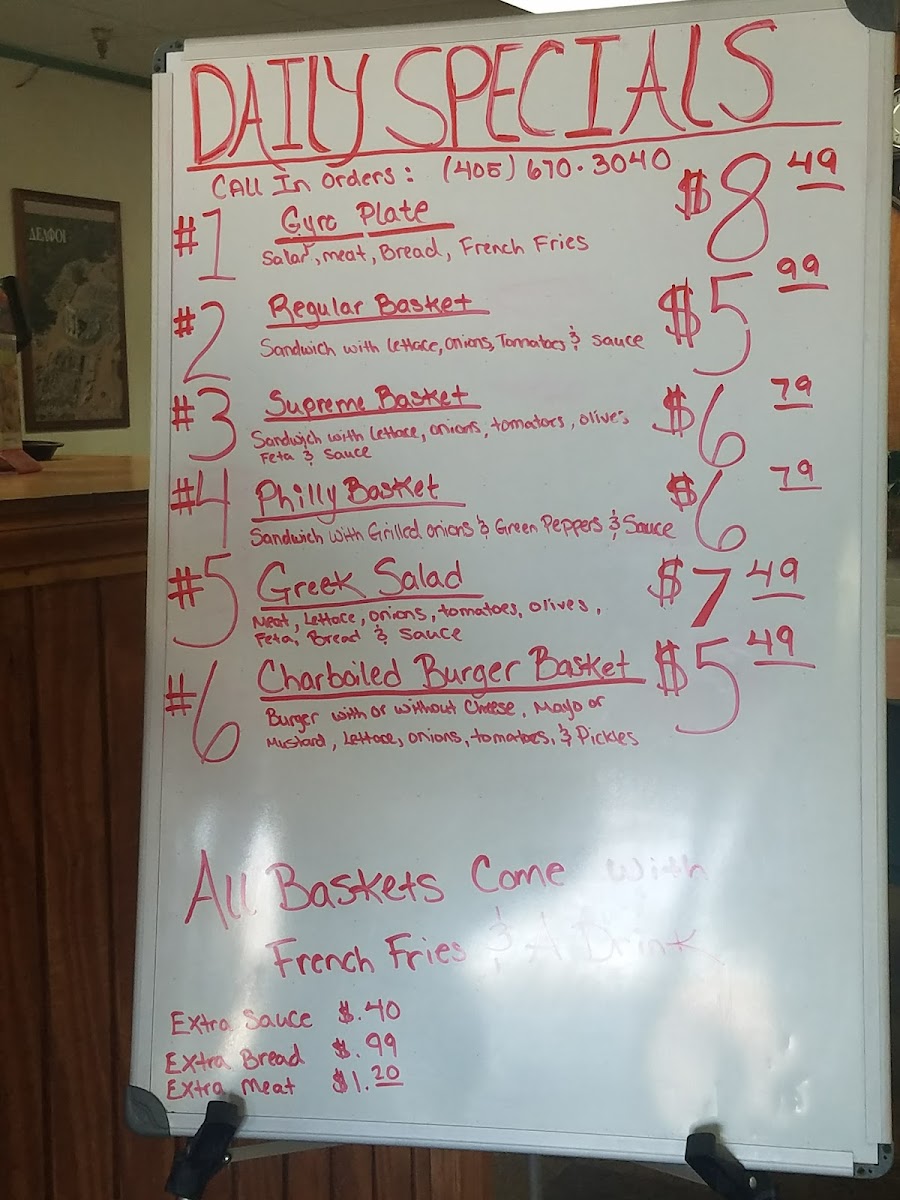 DAILY SPECIALS
Call In Orders: (405) 670·3040
#1 Gyro Plate $8 49
Salad, meat, Bread, French Fries
#2 Regular Basket $5 99
Sandwich with Lettace, onions, Tomatoes & sauce
#3 Supreme Basket $6 79
Sandwich with Lettace, onions, tomatoes, olives
Feta & Sauce
#4 Philly Basket $6 79
Sandwich with Grilled onions & Green Peppers & Sauce
#5 Greek Salad $7 49
Meat, Lettace, onions, tomatoes, olives,
Feta, Bread & Sauce
#6 Charboiled Burger Basket $5 49
Burger with or without Cheese, Mayo or
Mustard, Lettace, onions, tomatoes, & Pickles
All Baskets Come with
French Fries & A Drink
Extra Sauce $.40
Extra Bread $.99
Extra Meat $1.20
ΔΕΛΦΟΙ